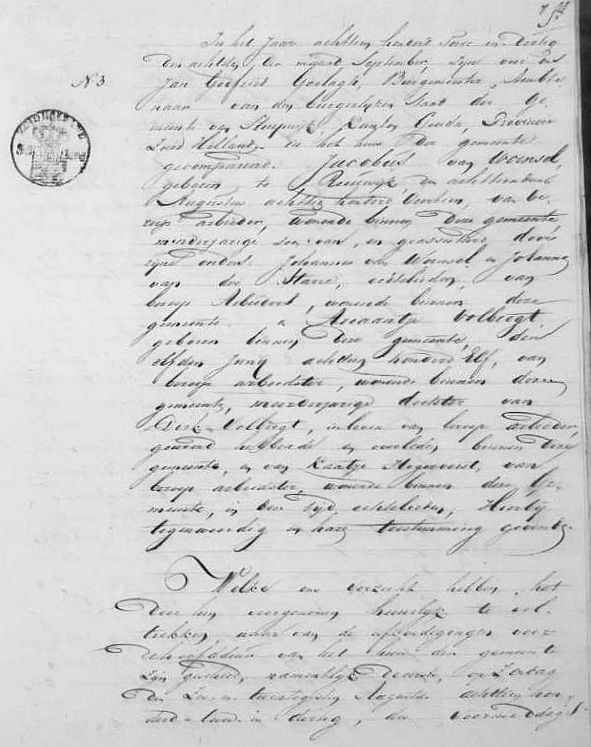 In het Jaar achttien honderd Twee en dertig
den achtsten der maand September, zijn voor ons
Jan Burgemeester, Ambte-
N 3
naar van den burgerlijken Staat der Ge-
meente van Kanton Gouda, Provincie
Zuid Holland, in het huis der gemeente
gecompareerd. Jacobus van Woensel,
geboren te Reeuwijk, den
Augustus achttien honderd van be-
roep arbeider, wonende binnen deze gemeente
minderjarige zoon van, en geassisteerd door
zijne ouders Johannes van Woensel en Johanna
van der Starre, echtelieden, van
beroep Arbeiders, wonende binnen deze
gemeente. & Ariaantje Volbregt,
geboren binnen deze gemeente, den
elfden Juny achttien honderd Elf, van
beroep arbeidster, wonende binnen deze
gemeente, minderjarige dochter van
Dirk Volbregt, in leven van beroep arbeider,
gewoond hebbende en overleden binnen deze
gemeente, en van Kaatje van
beroep arbeidster, wonende binnen deze Ge-
meente, in deze Hierbij
tegenwoordig en hare toestemming gevende.
Welke ons verzocht hebben, het
door hun voorgenomen huwelijk te vol-
trekken, waar van de afkondigingen voor
van het huis der gemeente
zijn geschied, namentlijk de eerste, op Zondag
den Zes en twintigsten Augustus achttien hon-
derd twee en dertig, des voormiddags